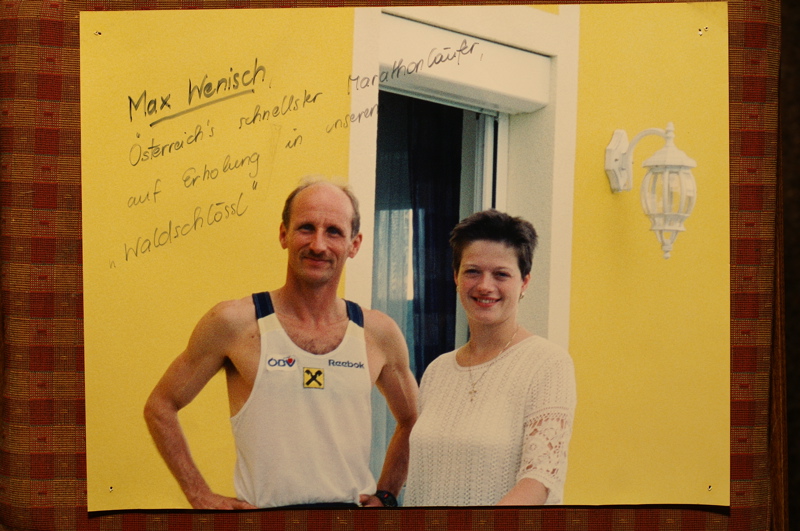 Max Wenisch,
Österreich's schnellster Marathonläufer,
auf Erholung in unseren
„Waldschlössl"
ÖBV Reebok